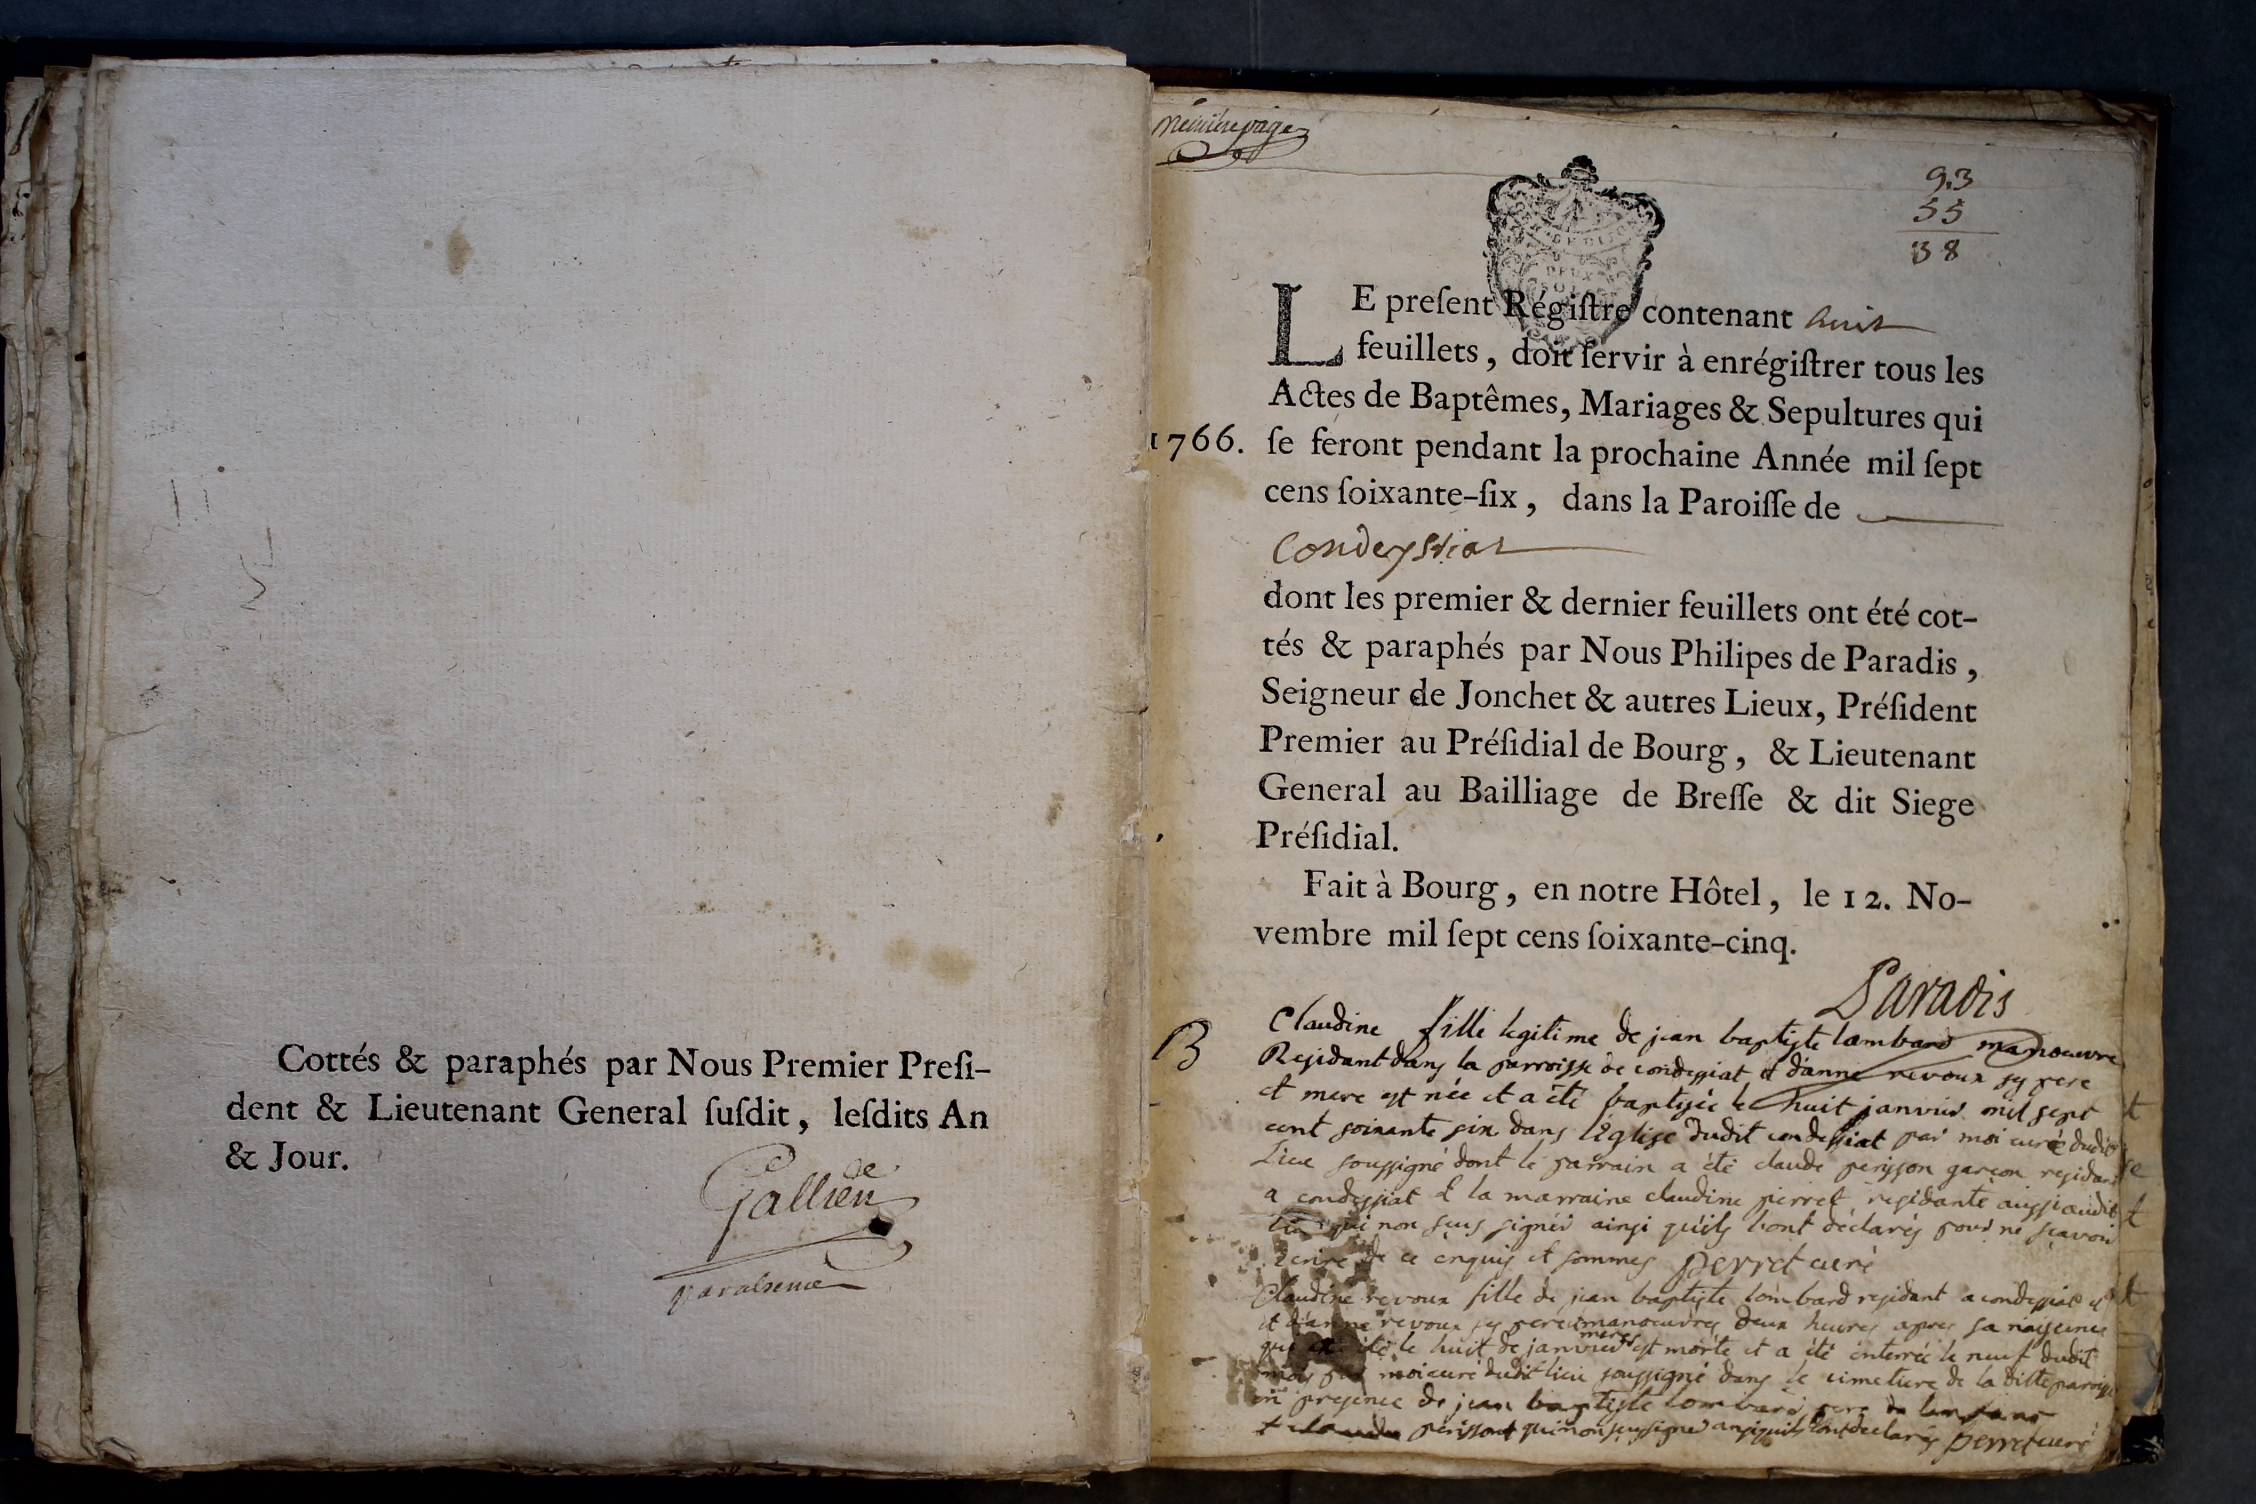 Cottés & paraphés par Nous Premier Presi-
dent & Lieutenant General susdit, lesdits An
& Jour.
Gallien
9.3
55
38
LE present Régistre contenant huit
feuillets, doit servir à enrégistrer tous les
Actes de Baptêmes, Mariages & Sepultures qui
1766. se feront pendant la prochaine Année mil sept
cens soixante-six, dans la Paroisse de
Condeyssiat
dont les premier & dernier feuillets ont été cot-
tés & paraphés par Nous Philipes de Paradis,
Seigneur de Jonchet & autres Lieux, Président
Premier au Présidial de Bourg, & Lieutenant
General au Bailliage de Bresse & dit Siege
Présidial.
Fait à Bourg, en notre Hôtel, le 12. No-
vembre mil sept cens soixante-cinq.
Paradis
B
Claudine fille legitime de jean baptiste lambard manoeuvre
Residant dans la parroisse de condessiat et d'anne revoux ses pere
et mere est née et a été baptisée le huit janvier mil sept
cent soixante six dans l'Eglise dudit condessiat par moi curé dudit
Lieu soussigné dont le parrain a été claude perisson garçon residant
a condessiat et la marraine claudine pierret residante aussi audit
lieu qui non sçus signer ainsi qu'ils l'ont déclarés pour ne sçavoir
Ecrire de ce enquis et sommes perret curé
Claudine revoux fille de jean baptiste lombard residant a condessiat et
et d'anne revoux ses pere manoeuvres deux heures apres sa naissance
mere
qui a été le huit de janvier est morte et a été enterrée le neuf dudit
mois par moi curé dudit lieu soussigné dans le cimetiere de la ditte paroisse
en presence de jean baptiste lombard pere de lenfant
et claude perisson qui non sçu signer ainsi quils l'ont declarés perret curé